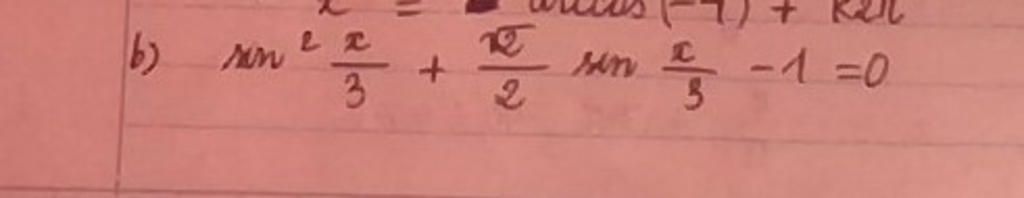 x = arccos(-4) + k2π
b) sin² x/3 + √2/2 sin x/3 - 1 = 0